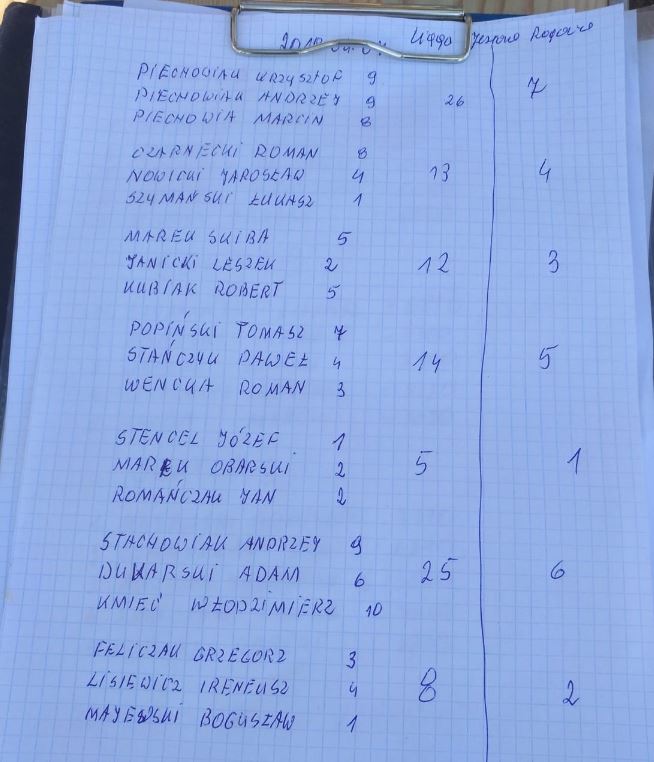 Liga
PIECHOWIAK KRZYSZTOF 9
PIECHOWIAK ANDRZEJ 9 26 7
PIECHOWIA MARCIN 8
CZARNECKI ROMAN 8
NOWICKI JAROSŁAW 4 13 4
SZYMAŃSKI ŁUKASZ 1
MAREK SKIBA 5
JANICKI LESZEK 2 12 3
KUBIAK ROBERT 5
POPIŃSKI TOMASZ 7
STAŃCZYK PAWEŁ 4 14 5
WENCKA ROMAN 3
STENCEL JÓZEF 1
MAREK OBARSKI 2 5 1
ROMAŃCZAK JAN 2
STACHOWIAK ANDRZEJ 9
DUKARSKI ADAM 6 25 6
KMIEĆ WŁODZIMIERZ 10
FELICZAK GRZEGORZ 3
LISIEWICZ IRENEUSZ 4 8 2
MAJEWSKI BOGUSŁAW 1